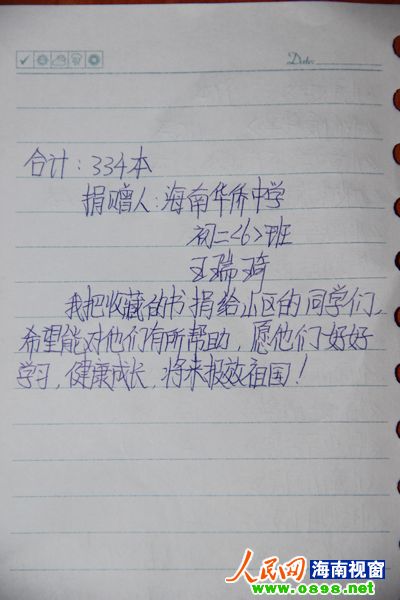 Date:
合计：334本
捐赠人：海南华侨中学
初二<6>班
王瑞琦
我把收藏的书捐给山区的同学们，
希望能对他们有所帮助，愿他们好好
学习，健康成长，将来报效祖国！
人民网 海南视窗
www.0898.net